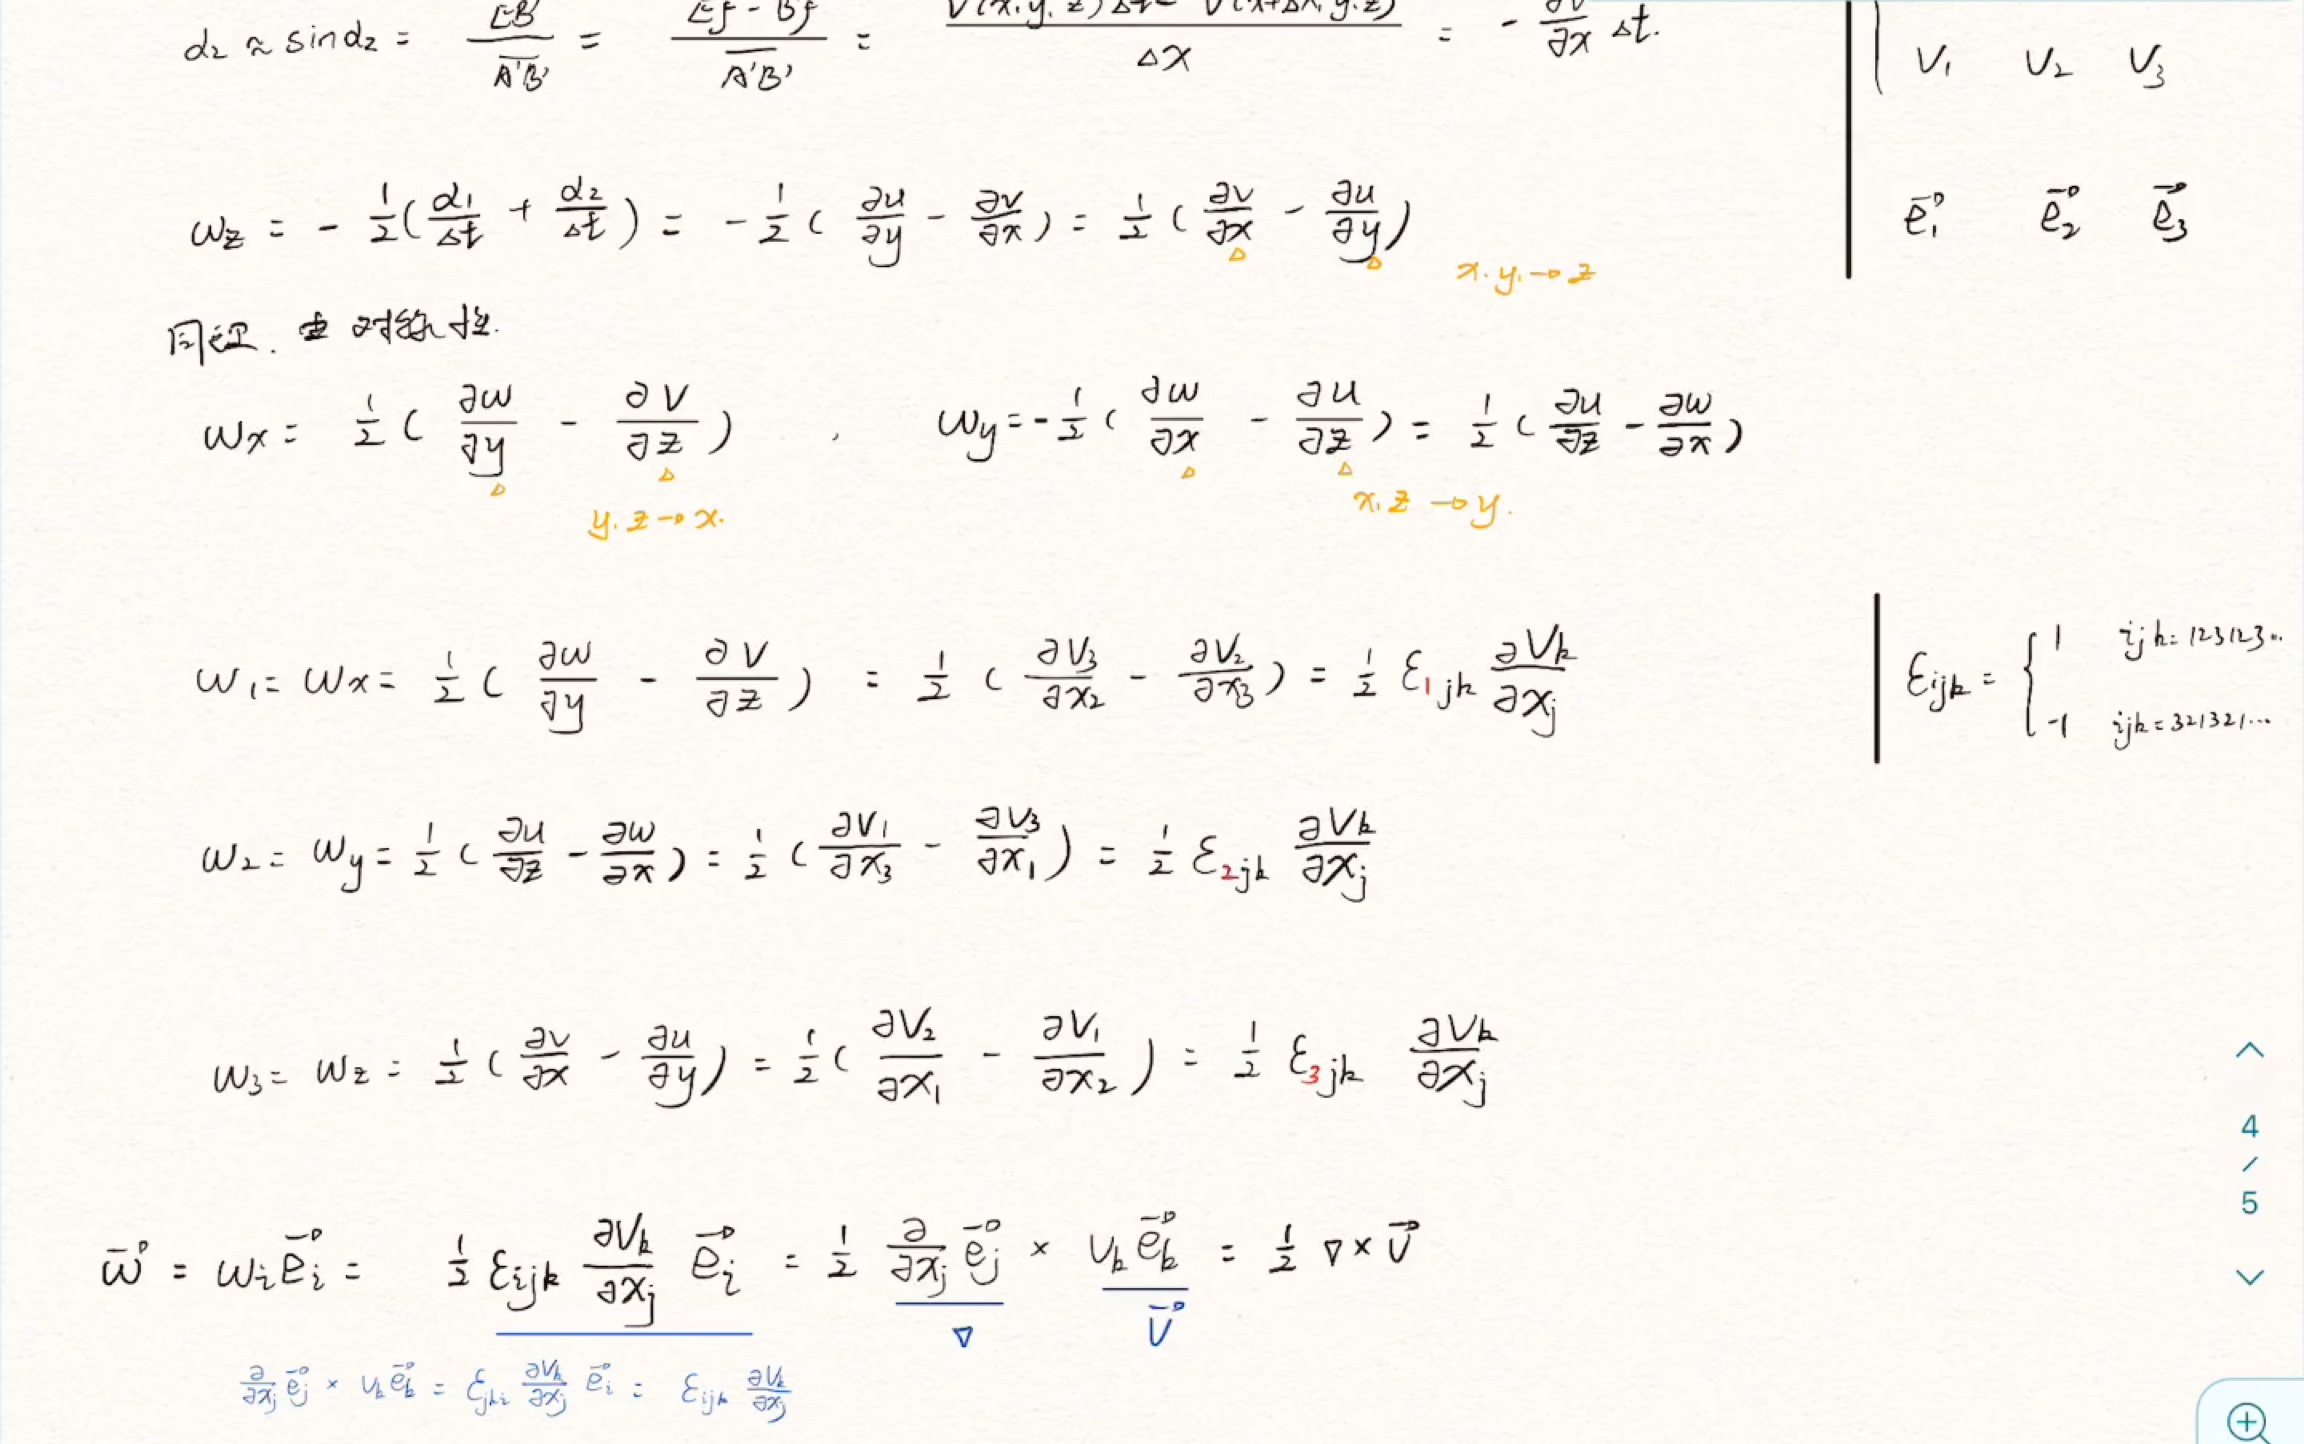 α₂ ≈ sinα₂ = EB'/A'B' = (Ef - B'f)/A'B' = (V(x,y,z)Δt - V(x+Δx,y,z))/Δx = - ∂V/∂x Δt.
V₁ V₂ V₃
ωz = - 1/2(α₁/Δt + α₂/Δt) = - 1/2( ∂u/∂y - ∂v/∂x ) = 1/2( ∂v/∂x - ∂u/∂y )
x.y.→z
e⃗₁ e⃗₂ e⃗₃
同理. 由对称性.
ωx = 1/2( ∂w/∂y - ∂v/∂z ) , ωy = - 1/2( ∂w/∂x - ∂u/∂z ) = 1/2( ∂u/∂z - ∂w/∂x )
y.z→x. x.z→y.
ω₁ = ωx = 1/2( ∂w/∂y - ∂v/∂z ) = 1/2( ∂V₃/∂x₂ - ∂V₂/∂x₃ ) = 1/2 ε₁jk ∂Vk/∂xj
εijk = { 1 ijk=123123..
-1 ijk=321321...
ω₂ = ωy = 1/2( ∂u/∂z - ∂w/∂x ) = 1/2( ∂V₁/∂x₃ - ∂V₃/∂x₁ ) = 1/2 ε₂jk ∂Vk/∂xj
ω₃ = ωz = 1/2( ∂v/∂x - ∂u/∂y ) = 1/2( ∂V₂/∂x₁ - ∂V₁/∂x₂ ) = 1/2 ε₃jk ∂Vk/∂xj
ω⃗ = ωi e⃗i = 1/2 εijk ∂Vk/∂xj e⃗i = 1/2 ∂/∂xj e⃗j × Vk e⃗k = 1/2 ∇×V⃗
∇ V⃗
∂/∂xj e⃗j × Vk e⃗k = εjki ∂Vk/∂xj e⃗i = εijk ∂Vk/∂xj
4
/
5